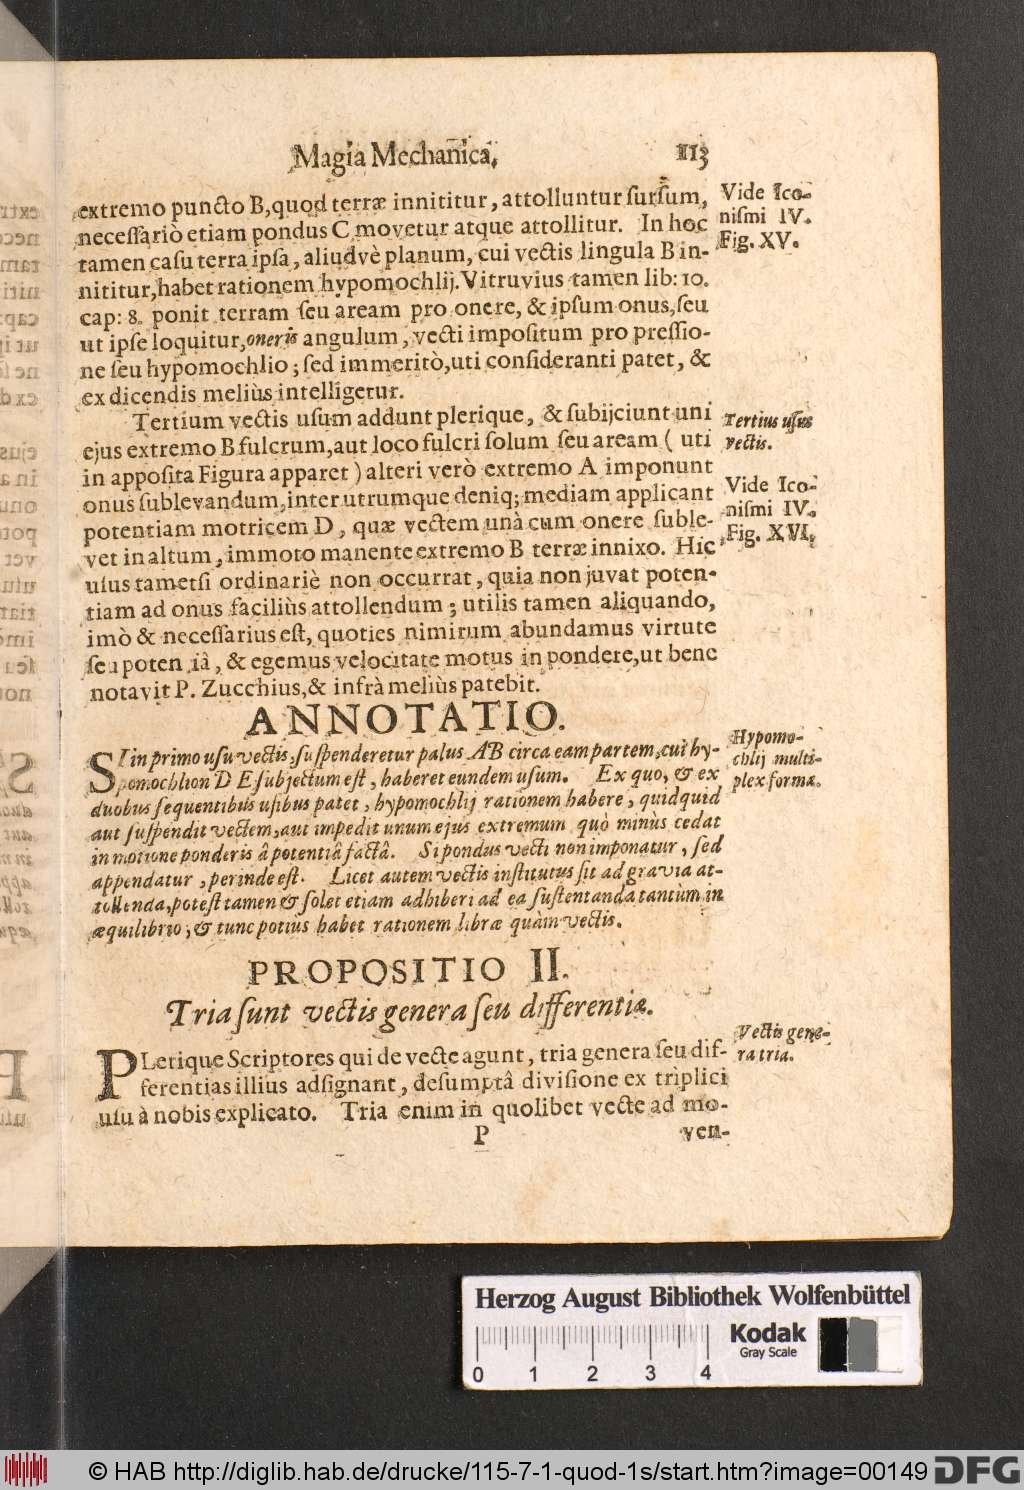 Magia Mechanica. 113
extremo puncto B, quod terræ innititur, attolluntur sursum,
necessariò etiam pondus C movetur atque attollitur. In hoc
tamen casu terra ipsa, aliudvè planum, cui vectis lingula B in-
nititur, habet rationem hypomochlij. Vitruvius tamen lib: 10.
cap: 8. ponit terram seu aream pro onere, & ipsum onus, seu
ut ipse loquitur, oneris angulum, vecti impositum pro pressio-
ne seu hypomochlio; sed immeritò, uti consideranti patet, &
ex dicendis meliùs intelligetur.
Vide Ico-
nismi IV.
Fig. XV.
Tertium vectis usum addunt plerique, & subijciunt uni
ejus extremo B fulcrum, aut loco fulcri solum seu aream ( uti
in apposita Figura apparet ) alteri verò extremo A imponunt
onus sublevandum, inter utrumque deniq; mediam applicant
potentiam motricem D, quæ vectem unà cum onere suble-
vet in altum, immoto manente extremo B terræ innixo. Hic
usus tametsi ordinariè non occurrat, quia non juvat poten-
tiam ad onus faciliùs attollendum; utilis tamen aliquando,
imò & necessarius est, quoties nimirum abundamus virtute
seu poten iâ, & egemus velocitate motus in pondere, ut bene
notavit P. Zucchius, & infrà meliùs patebit.
Tertius usus
vectis.
Vide Ico-
nismi IV.
Fig. XVI.
ANNOTATIO.
SI in primo usu vectis, suspenderetur palus AB circa eam partem, cui hy-
pomochlion D E subjectum est, haberet eundem usum. Ex quo, & ex
duobus sequentibus usibus patet, hypomochlij rationem habere, quidquid
aut suspendit vectem, aut impedit unum ejus extremum quò minùs cedat
in motione ponderis â potentiâ factâ. Si pondus vecti non imponatur, sed
appendatur, perinde est. Licet autem vectis institutus sit ad gravia at-
tollenda, potest tamen & solet etiam adhiberi ad ea sustentanda tantùm in
æquilibrio; & tunc potius habet rationem libræ quàm vectis.
Hypomo-
chlij multi-
plex forma.
PROPOSITIO II.
Tria sunt vectis genera seu differentiæ.
PLerique Scriptores qui de vecte agunt, tria genera seu dif-
ferentias illius adsignant, desumptâ divisione ex triplici
usu à nobis explicato. Tria enim in quolibet vecte ad mo-
Vectis gene-
ra tria.
P ven-
Herzog August Bibliothek Wolfenbüttel
Kodak
Gray Scale
0 1 2 3 4
© HAB http://diglib.hab.de/drucke/115-7-1-quod-1s/start.htm?image=00149
DFG